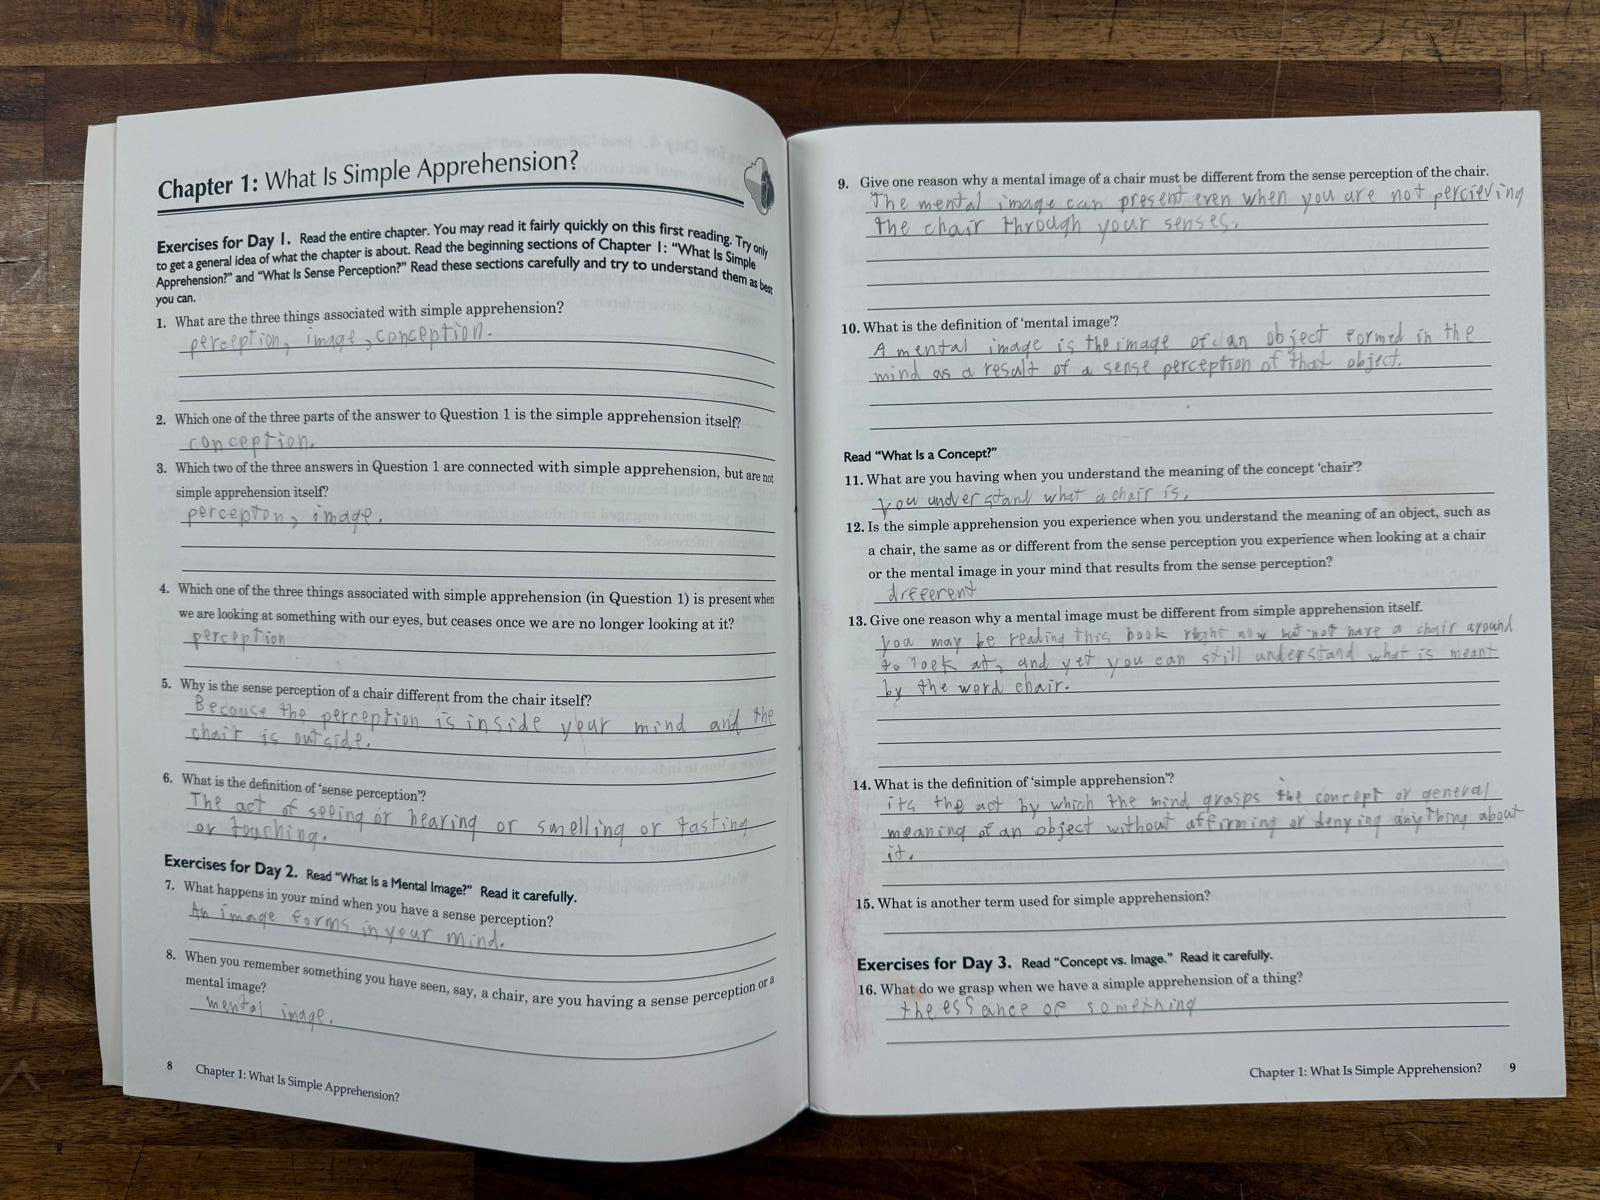 Chapter 1: What Is Simple Apprehension?
Exercises for Day 1. Read the entire chapter. You may read it fairly quickly on this first reading. Try only
to get a general idea of what the chapter is about. Read the beginning sections of Chapter 1: “What Is Simple
Apprehension?” and “What Is Sense Perception?” Read these sections carefully and try to understand them as best
you can.
1. What are the three things associated with simple apprehension?
perception, image, conception.
2. Which one of the three parts of the answer to Question 1 is the simple apprehension itself?
conception.
3. Which two of the three answers in Question 1 are connected with simple apprehension, but are not
simple apprehension itself?
percepton, image.
4. Which one of the three things associated with simple apprehension (in Question 1) is present when
we are looking at something with our eyes, but ceases once we are no longer looking at it?
perception
5. Why is the sense perception of a chair different from the chair itself?
Becouse the perception is inside your mind and the
chair is outside.
6. What is the definition of ‘sense perception’?
The act of seeing or hearing or smelling or tasting
or touching.
Exercises for Day 2. Read “What Is a Mental Image?” Read it carefully.
7. What happens in your mind when you have a sense perception?
An image forms in your mind.
8. When you remember something you have seen, say, a chair, are you having a sense perception or a
mental image?
mental image.
8 Chapter 1: What Is Simple Apprehension?
9. Give one reason why a mental image of a chair must be different from the sense perception of the chair.
The mental image can present even when you are not percieving
the chair through your senses.
10. What is the definition of ‘mental image’?
A mental image is the image of an object formed in the
mind as a result of a sense perception of that object.
Read “What Is a Concept?”
11. What are you having when you understand the meaning of the concept ‘chair’?
you understand what a chair is.
12. Is the simple apprehension you experience when you understand the meaning of an object, such as
a chair, the same as or different from the sense perception you experience when looking at a chair
or the mental image in your mind that results from the sense perception?
different
13. Give one reason why a mental image must be different from simple apprehension itself.
you may be reading this book right now but not have a chair around
to look at, and yet you can still understand what is meant
by the word chair.
14. What is the definition of ‘simple apprehension’?
its the act by which the mind grasps the concept or general
meaning of an object without affirming or denying anything about
it.
15. What is another term used for simple apprehension?
Exercises for Day 3. Read “Concept vs. Image.” Read it carefully.
16. What do we grasp when we have a simple apprehension of a thing?
the essance of something
Chapter 1: What Is Simple Apprehension? 9